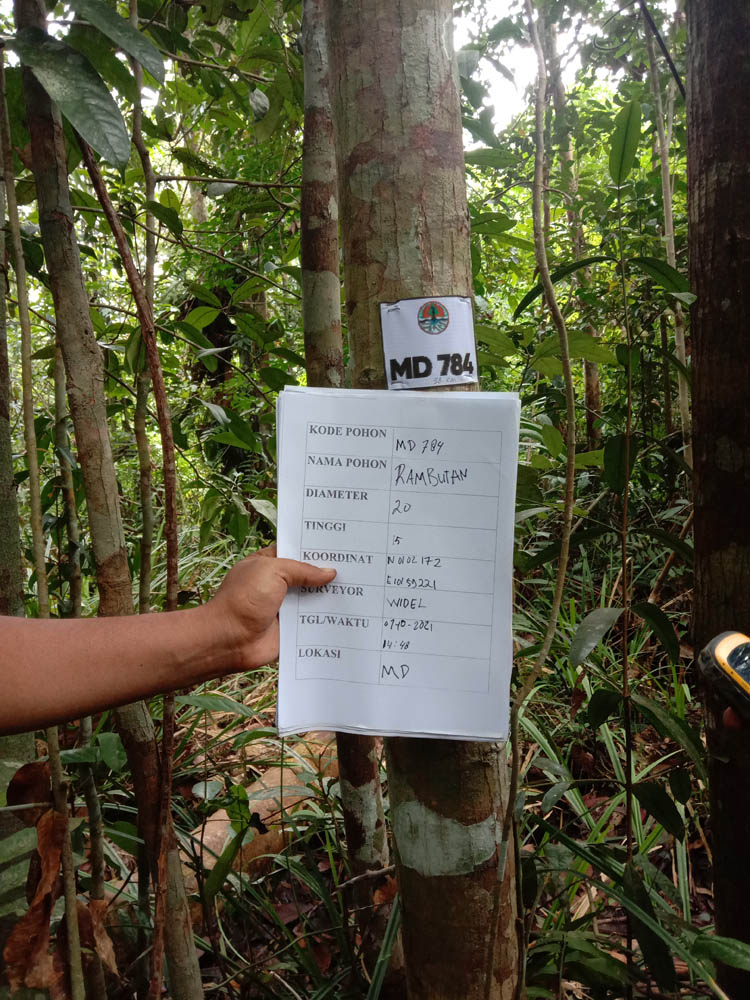 MD 784
KODE POHON MD 784
NAMA POHON RAMBUTAN
DIAMETER 20
TINGGI 15
KOORDINAT N 0102 172
E10159221
SURVEYOR WIDEL
TGL/WAKTU 07-10-2021
14:48
LOKASI MD